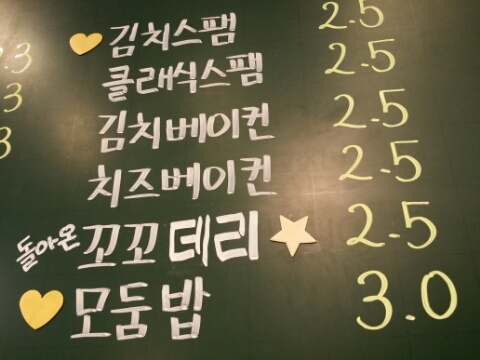 김치스팸 2.5
클래식스팸 2.5
김치베이컨 2.5
치즈베이컨 2.5
돌아온 꼬꼬데리 2.5
모둠밥 3.0